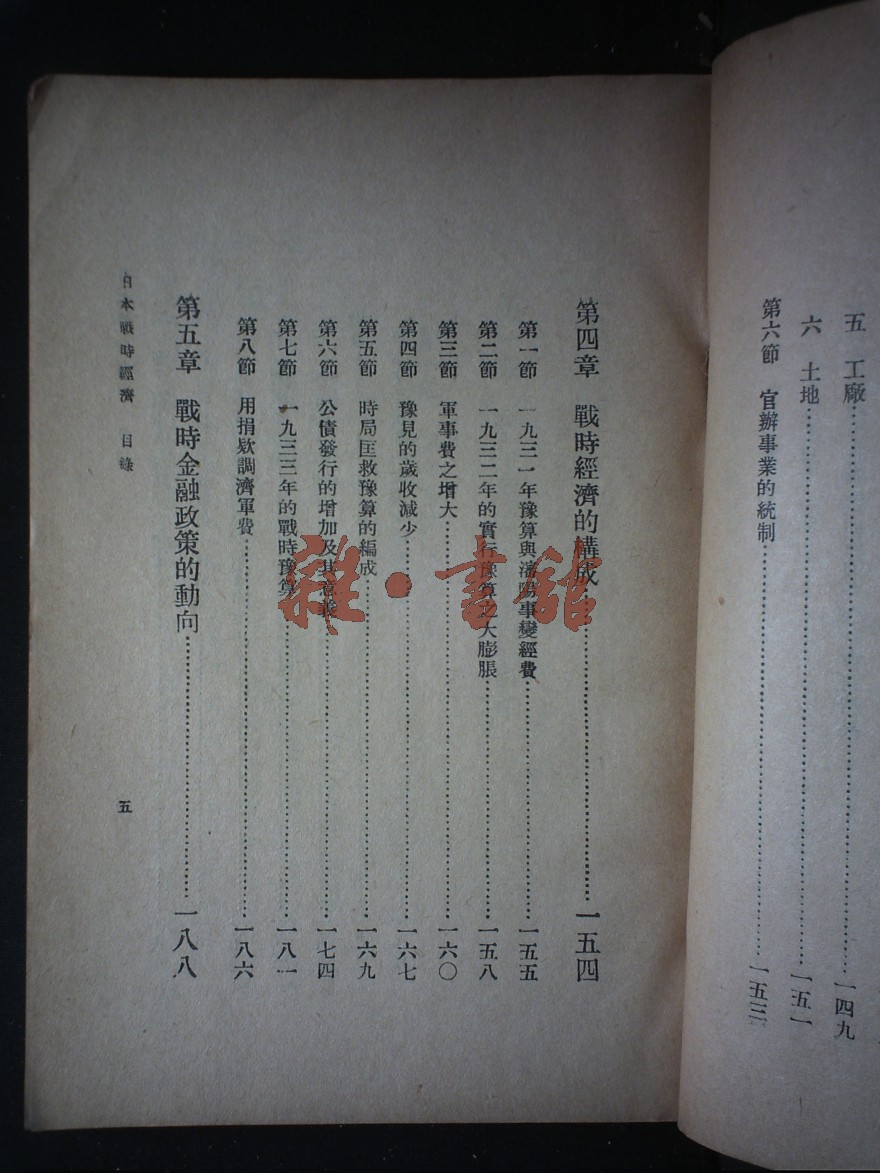 五 工廠……一四九
六 土地……一五一
第六節 官辦事業的統制……一五三
第四章 戰時經濟的構成……一五四
第一節 一九三一年豫算與瀋陽事變經費……一五五
第二節 一九三二年的實行豫算之大膨脹……一五八
第三節 軍事費之增大……一六〇
第四節 豫見的歲收減少……一六七
第五節 時局匡救豫算的編成……一六九
第六節 公債發行的增加及其意義……一七四
第七節 一九三三年的戰時豫算……一八一
第八節 用捐欵調濟軍費……一八六
第五章 戰時金融政策的動向……一八八
日本戰時經濟 目錄
五
雜·書舘